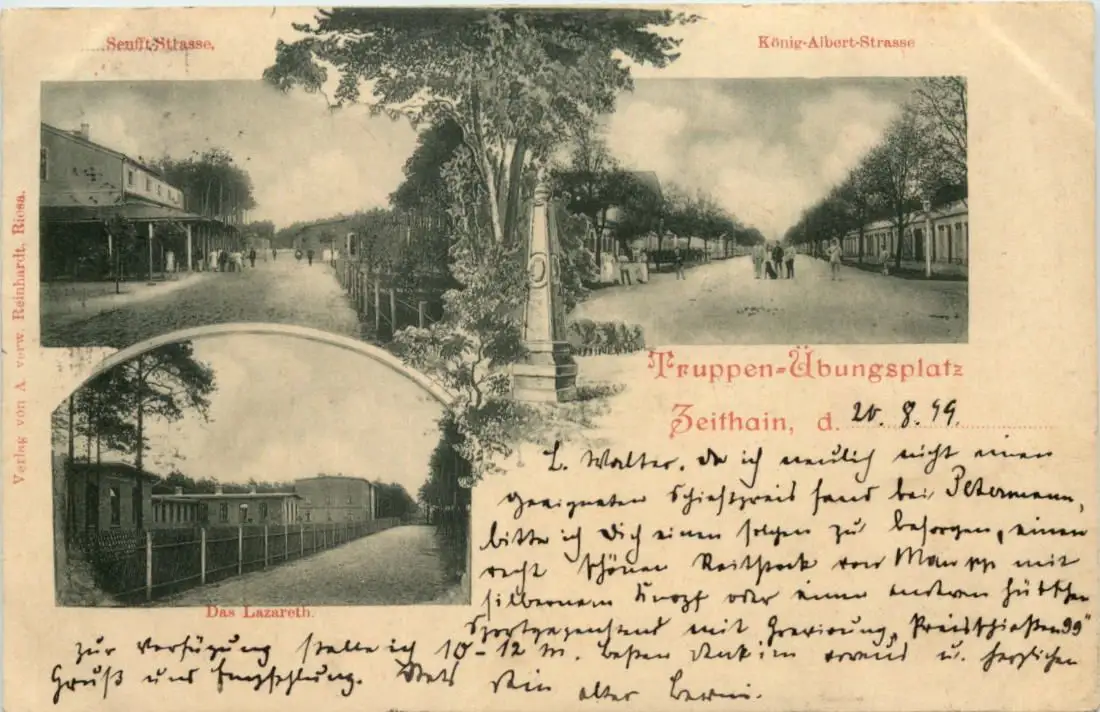 Senfft-Strasse.
König-Albert-Strasse
Verlag von A. verw. Reinhardt, Riesa.
Truppen-Übungsplatz
Zeithain, d. 20. 8. 99.
L. Walter, da ich neulich nicht einen
geeigneten Schießpreis fand bei Petermann,
bitte ich Dich einen solchen zu besorgen, einen
recht schönen Reitstock von Mapp mit
silbernem Knopf oder einen anderen hübschen
Das Lazareth.
Sportgegenstand mit Gravirung „Preisschießen 99"
zur Verfügung stelle ich 10-12 M. besten Dank im voraus u. herzlichen
Gruß und Empfehlung. Stets Dein alter